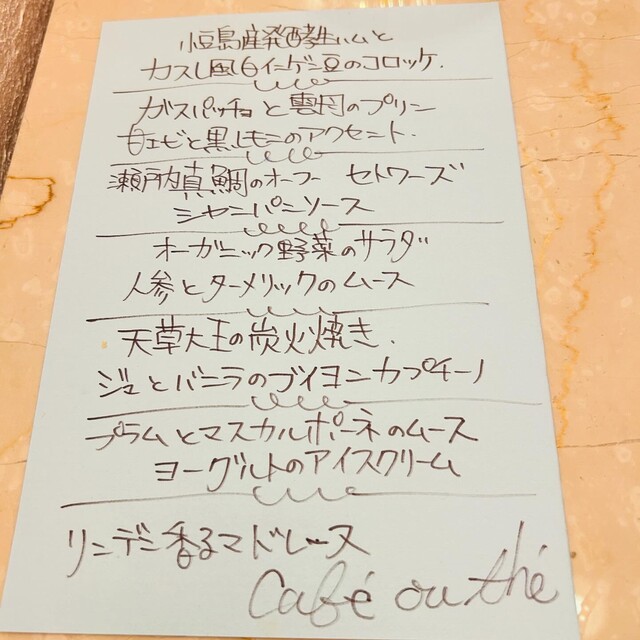 小豆島産発酵生ハムと
カスレ風白インゲン豆のコロッケ.
ガスパッチョと雲丹のプリン
甘エビと黒レモンのアクセント.
瀬戸内真鯛のオーフー セトワーズ
シャンパンソース
オーガニック野菜のサラダ
人参とターメリックのムース
天草大王の炭火焼き.
ジュとバニラのブイヨンカプチーノ
プラムとマスカルポーネのムース
ヨーグルトのアイスクリーム
リンデン香るマドレーヌ
Café ou thé